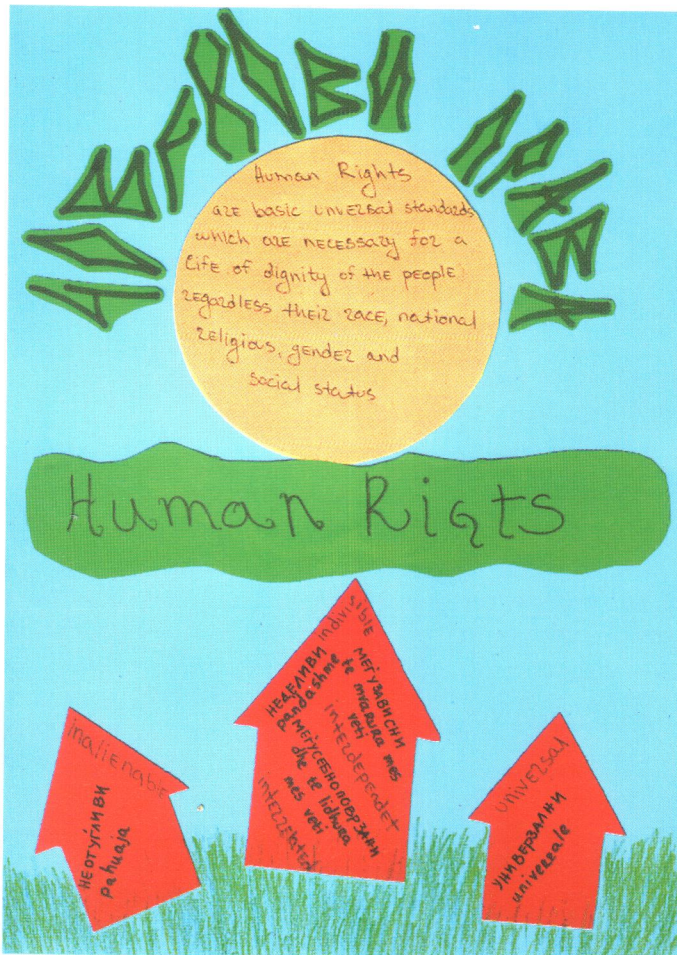 ЧОВЕКОВИ ПРАВА
Human Rights
are basic unversal standards
which are necessary for a
life of dignity of the people
regardless their race, national
religious, gender and
social status
Human Rigts
inalienable
НЕОТУЃЛИВИ
pahuaja
indivisible
НЕДЕЛИВИ
pandashme
МЕЃУЗАВИСНИ
te mvarura mes
veti
interdependet
МЕЃУСЕБНО ПОВРЗАНИ
dhe te lidhura
mes veti
interrelated
universal
УНИВЕРЗАЛНИ
univerzale